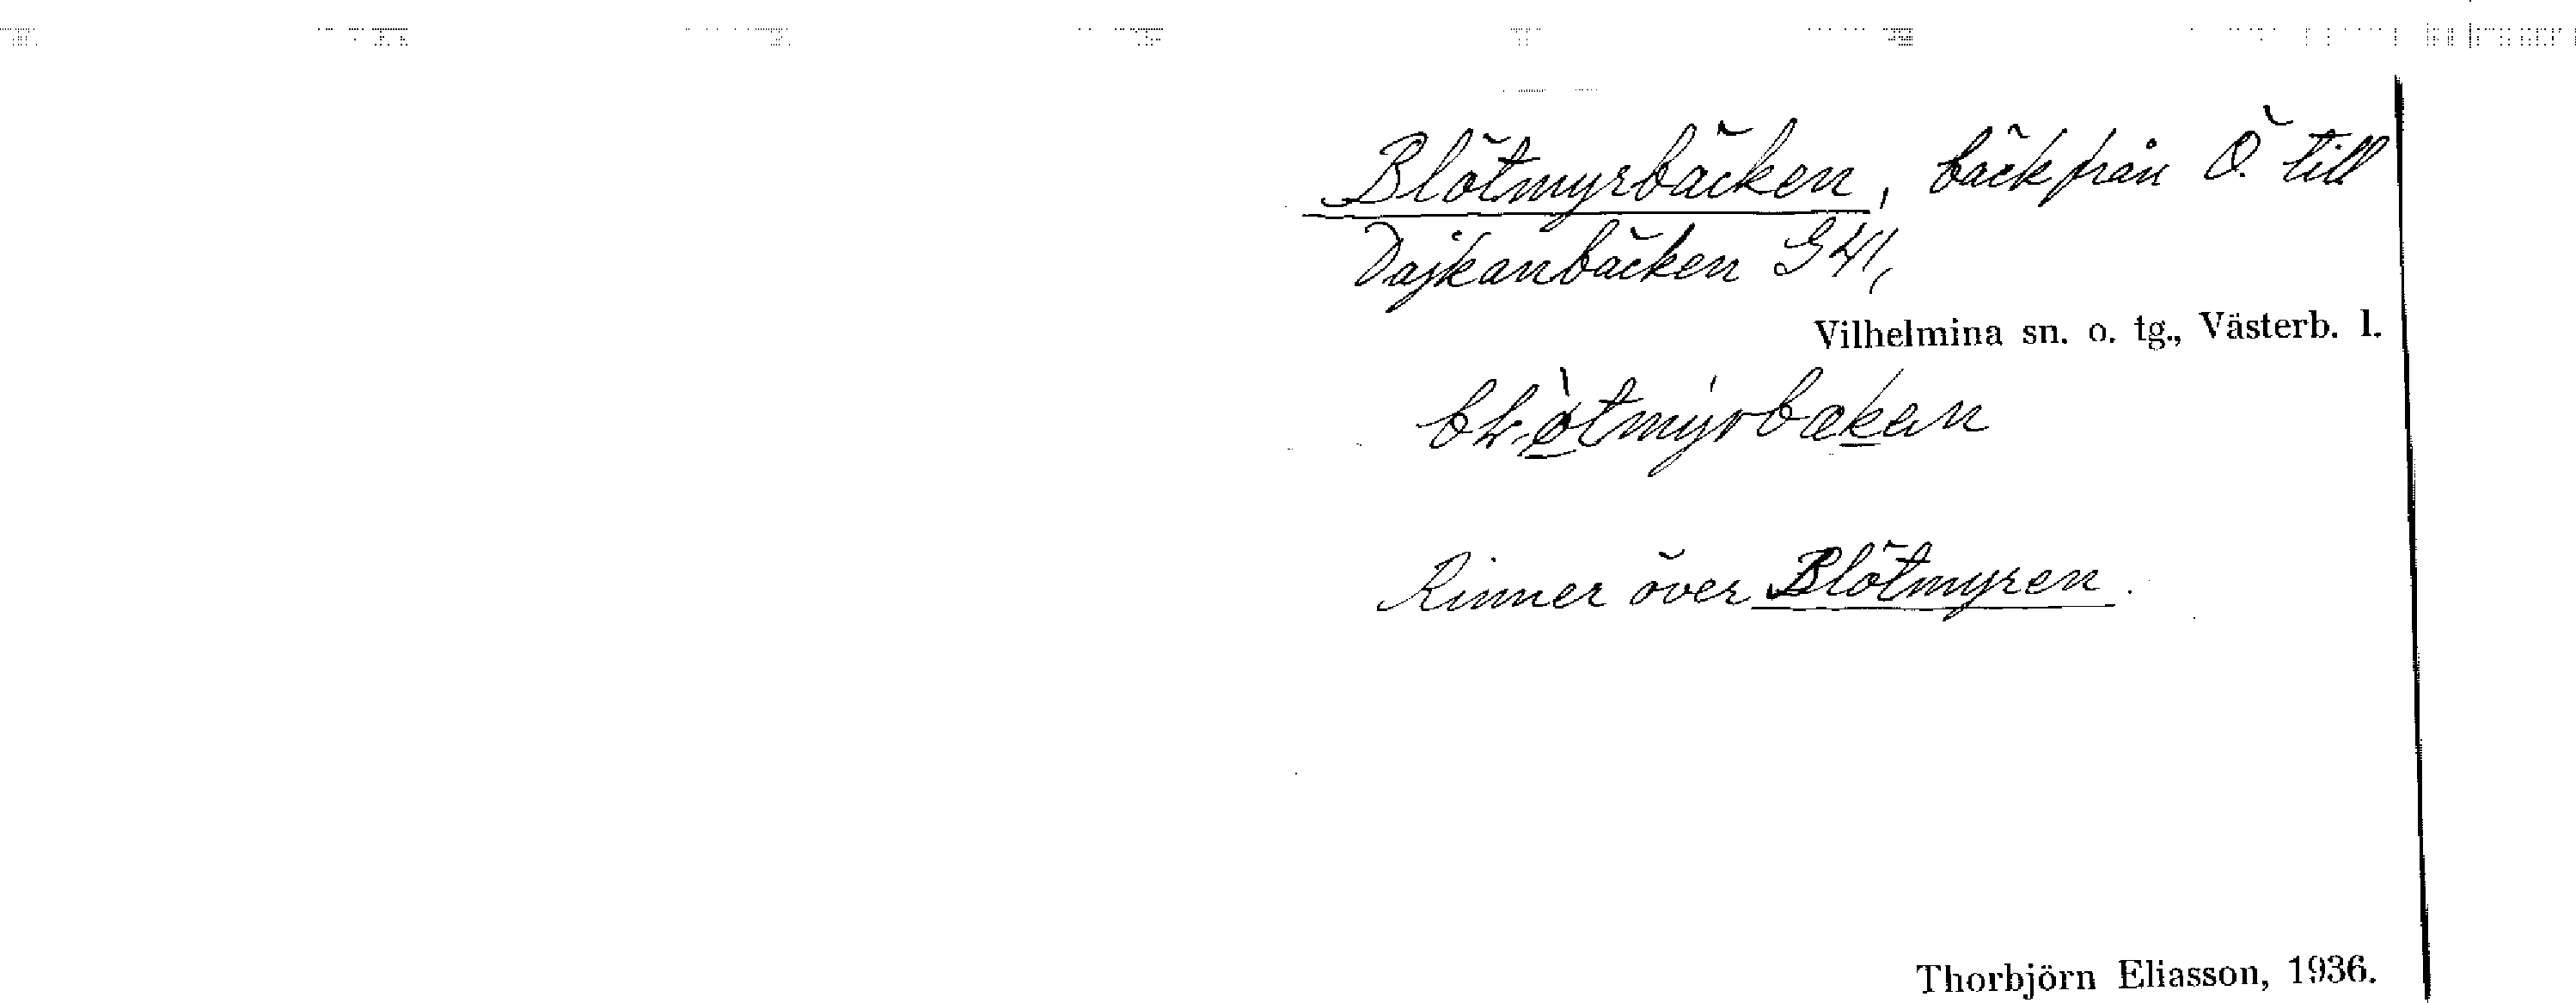 Blötmyrbäcken, bäck från Ö. till
Dajkanbäcken G41,
Vilhelmina sn. o. tg., Västerb. l.
Rinner över Blötmyren.
Thorbjörn Eliasson, 1936.